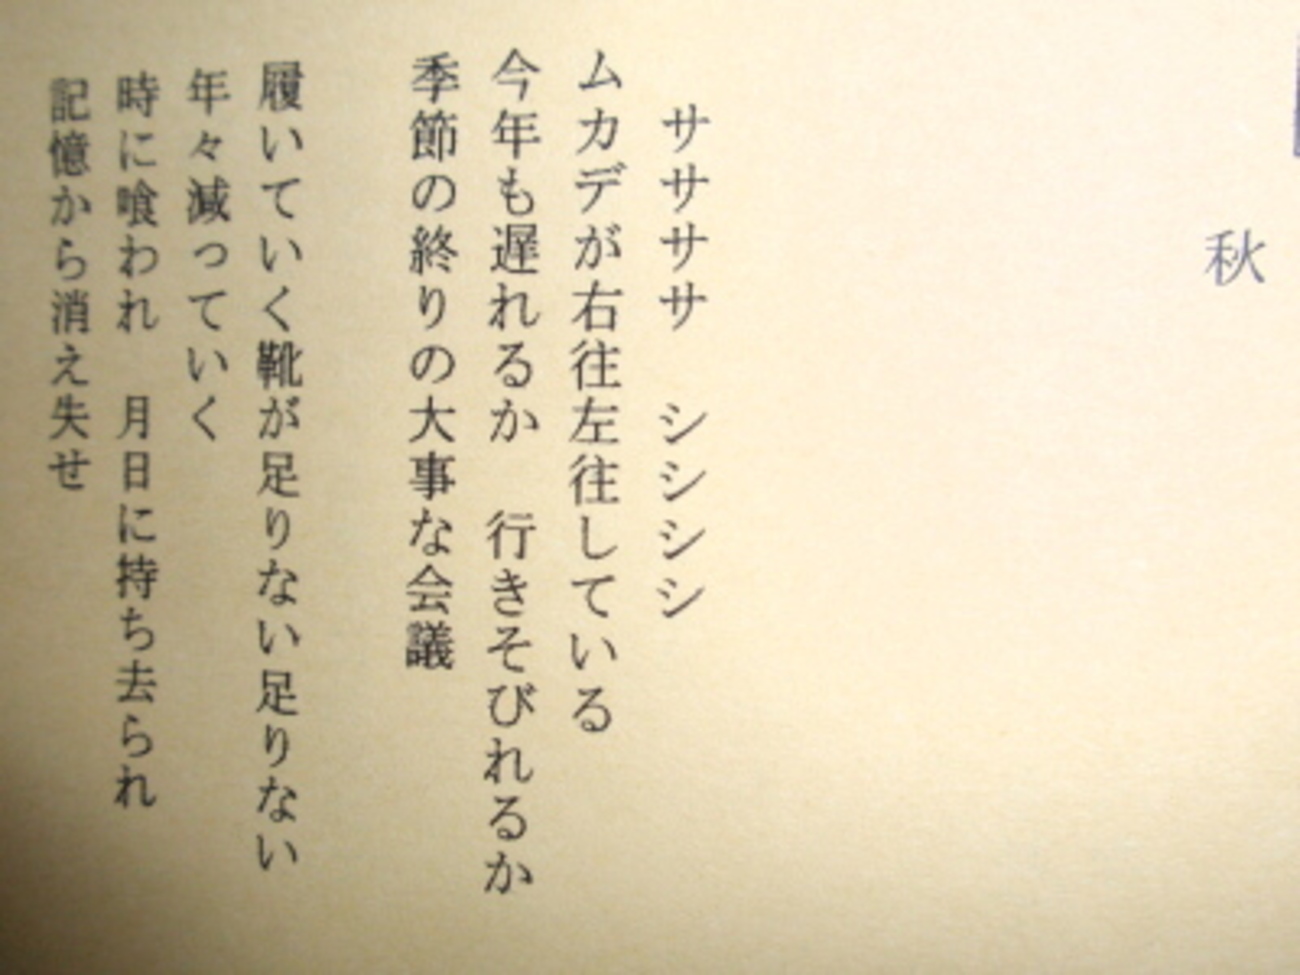 秋
ササササ　シシシシ
ムカデが右往左往している
今年も遅れるか　行きそびれるか
季節の終りの大事な会議
履いていく靴が足りない足りない
年々減っていく
時に喰われ　月日に持ち去られ
記憶から消え失せ